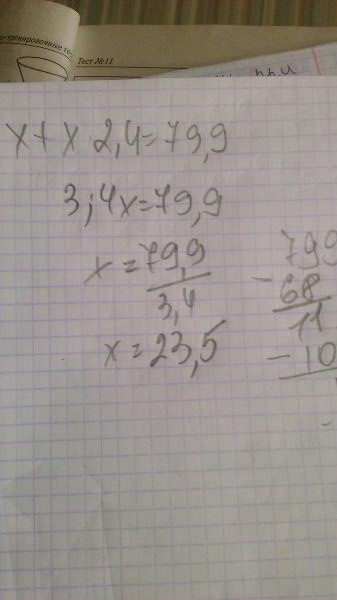 -тренировочные те
Тест №11
x+x·2,4=79,9
3,4x=79,9
x=79,9
3,4
x=23,5
799
-68
11
-10